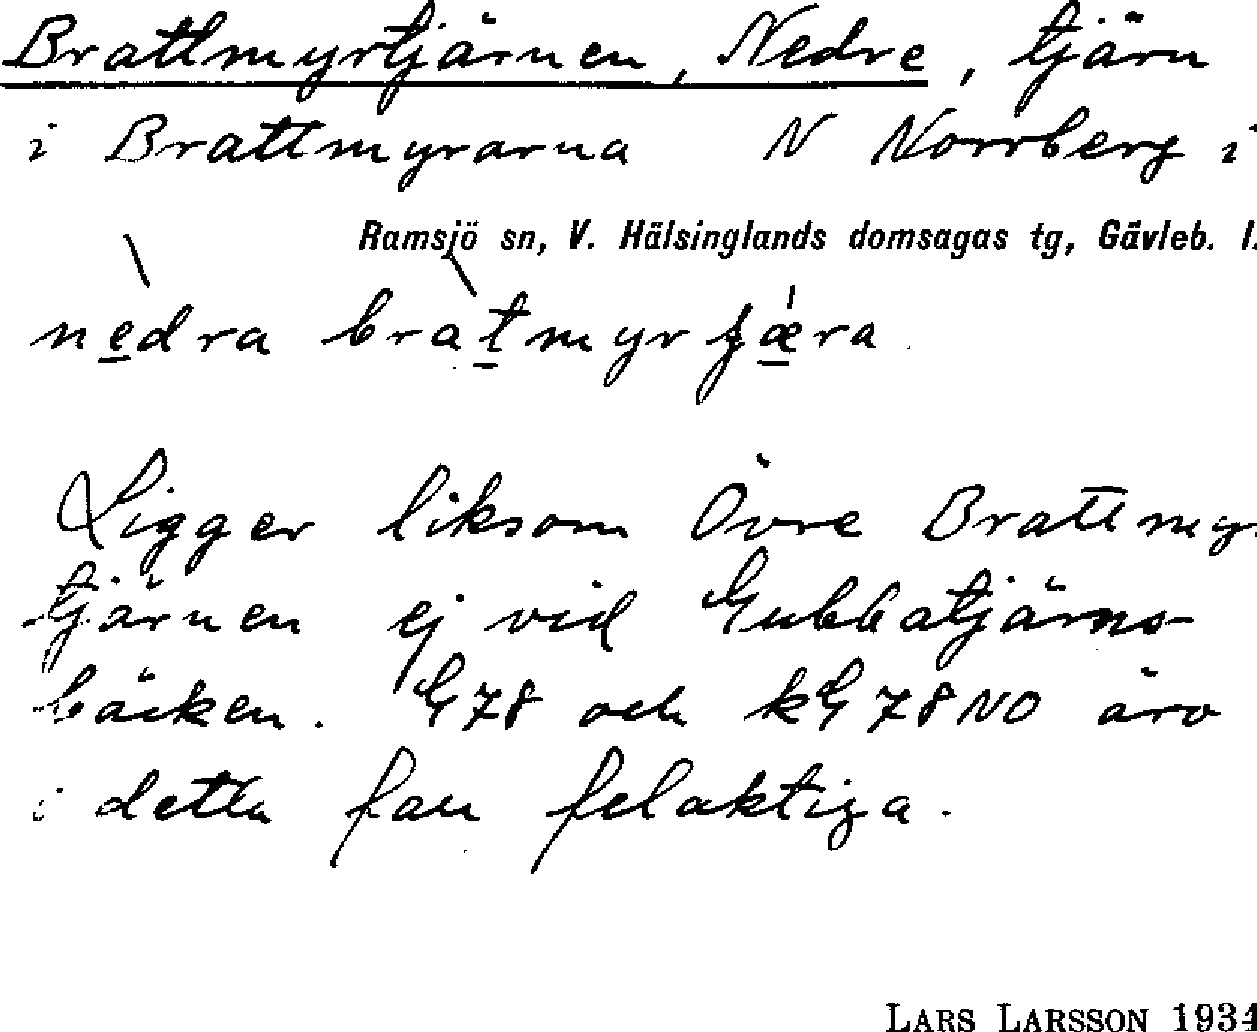 Brattmyrtjärnen, Nedre, tjärn
i Brattmyrarna N Norrberg i
Ramsjö sn, V. Hälsinglands domsagas tg, Gävleb. l.
nedra bratmyr
Ligger liksom Övre Brattmyr-
tjärnen ej vid Gubbatjärns-
bäcken. G78 och kG78NO äro
i detta fall felaktiga.
LARS LARSSON 1934